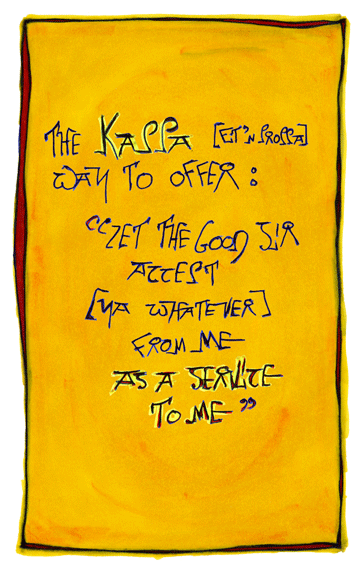 THE KAPPA [ET'N PROPPA]
WAY TO OFFER :
"LET THE GOOD SIR
ACCEPT
[YA WHATEVER]
FROM ME
AS A SERVICE
TO ME"